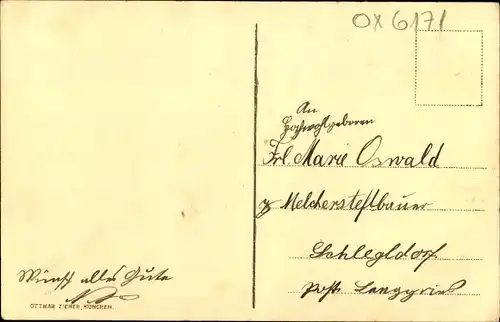 OX 6171
An
Hochwohlgeboren
Frl. Marie Oswald
z Melchersteflbauer
Schlegldorf
Post Lenggries
Wünsch alles Gute
OTTMAR ZIEHER, MÜNCHEN.